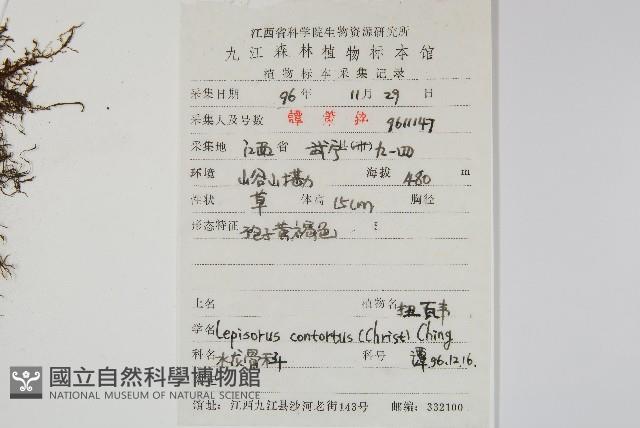 江西省科学院生物资源研究所
九江森林植物标本馆
植物标本采集记录
采集日期 96年 11月 29日
采集人及号数 譚策銘 9611147
采集地 江西省 武宁县(市) 九一四
环境 山谷山塝 海拔 480 m
性状 草 体高 15cm 胸径
形态特征 孢子黄褐色
土名 植物名 扭瓦韦
学名 Lepisorus contortus (Christ) Ching
科名 水龙骨科 科号 譚96.12.16.
國立自然科學博物館
NATIONAL MUSEUM OF NATURAL SCIENCE
馆址:江西九江县沙河老街143号 邮编:332100